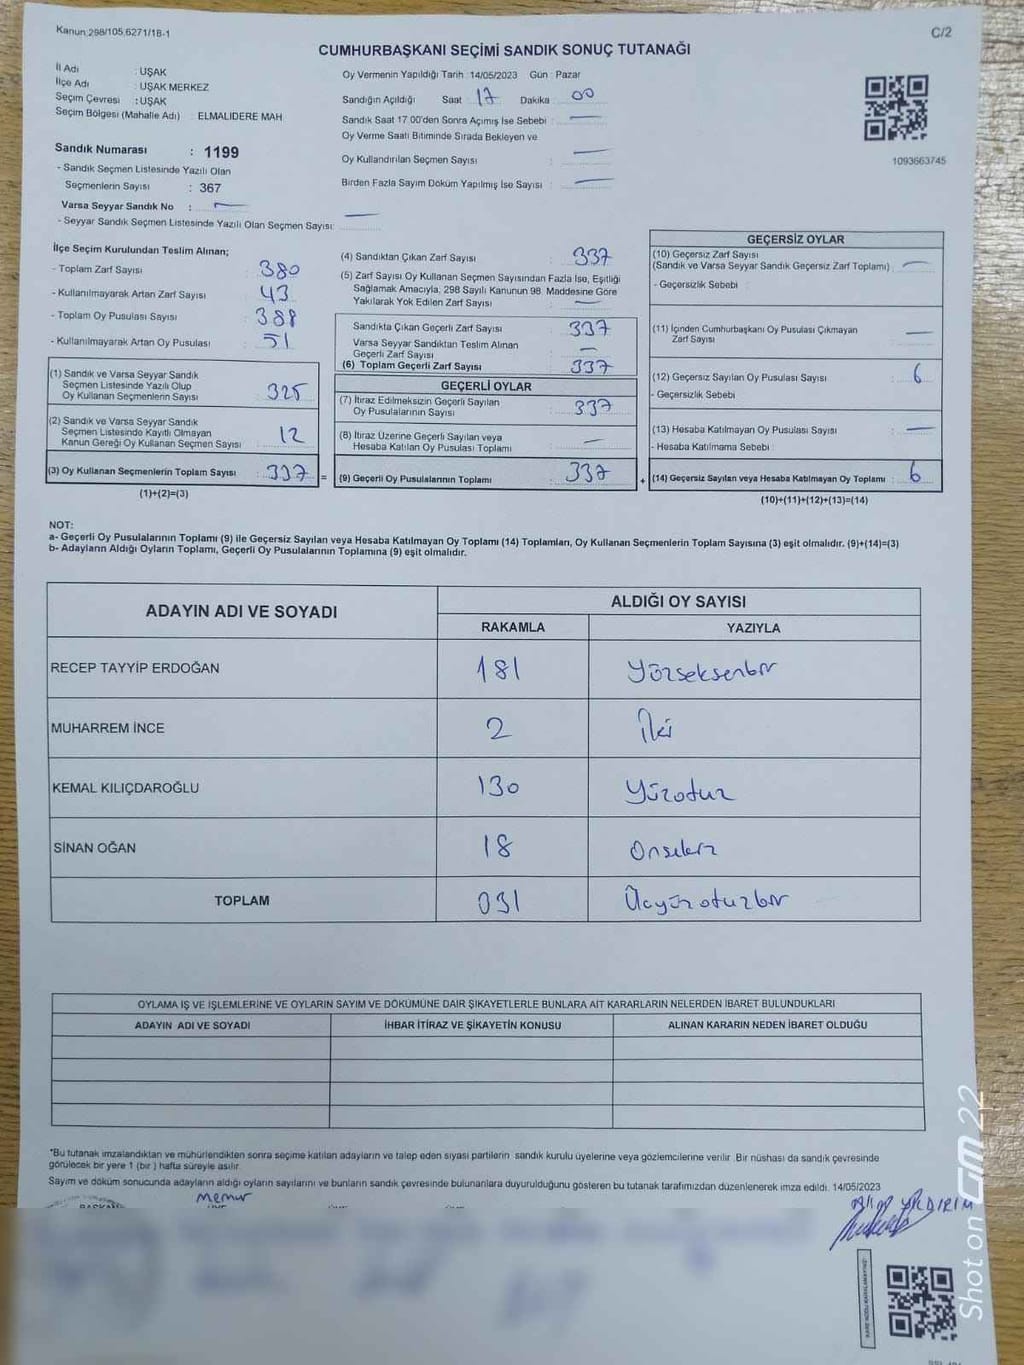 Kanun:298/105,6271/1B-1
C/2
CUMHURBAŞKANI SEÇİMİ SANDIK SONUÇ TUTANAĞI
İl Adı : UŞAK
İlçe Adı : UŞAK MERKEZ
Seçim Çevresi : UŞAK
Seçim Bölgesi (Mahalle Adı) : ELMALIDERE MAH
Sandık Numarası : 1199
- Sandık Seçmen Listesinde Yazılı Olan
Seçmenlerin Sayısı : 367
Varsa Seyyar Sandık No : —
- Seyyar Sandık Seçmen Listesinde Yazılı Olan Seçmen Sayısı: —
Oy Vermenin Yapıldığı Tarih : 14/05/2023 Gün : Pazar
Sandığın Açıldığı Saat 17 Dakika 00
Sandık Saat 17.00'den Sonra Açımış İse Sebebi : —
Oy Verme Saati Bitiminde Sırada Bekleyen ve
Oy Kullandırılan Seçmen Sayısı : —
Birden Fazla Sayım Döküm Yapılmış İse Sayısı : —
1093663745
İlçe Seçim Kurulundan Teslim Alınan;
- Toplam Zarf Sayısı : 380
- Kullanılmayarak Artan Zarf Sayısı : 43
- Toplam Oy Pusulası Sayısı : 388
- Kullanılmayarak Artan Oy Pusulası : 51
(1) Sandık ve Varsa Seyyar Sandık
Seçmen Listesinde Yazılı Olup
Oy Kullanan Seçmenlerin Sayısı : 325
(2) Sandık ve Varsa Seyyar Sandık
Seçmen Listesinde Kayıtlı Olmayan
Kanun Gereği Oy Kullanan Seçmen Sayısı : 12
(3) Oy Kullanan Seçmenlerin Toplam Sayısı : 337 =
(1)+(2)=(3)
(4) Sandıktan Çıkan Zarf Sayısı : 337
(5) Zarf Sayısı Oy Kullanan Seçmen Sayısından Fazla İse, Eşitliği
Sağlamak Amacıyla, 298 Sayılı Kanunun 98. Maddesine Göre
Yakılarak Yok Edilen Zarf Sayısı : —
Sandıkta Çıkan Geçerli Zarf Sayısı : 337
Varsa Seyyar Sandıktan Teslim Alınan
Geçerli Zarf Sayısı : —
(6) Toplam Geçerli Zarf Sayısı : 337
GEÇERLİ OYLAR
(7) İtiraz Edilmeksizin Geçerli Sayılan
Oy Pusulalarının Sayısı : 337
(8) İtiraz Üzerine Geçerli Sayılan veya
Hesaba Katılan Oy Pusulası Toplamı : —
(9) Geçerli Oy Pusulalarının Toplamı : 337 +
GEÇERSİZ OYLAR
(10) Geçersiz Zarf Sayısı
(Sandık ve Varsa Seyyar Sandık Geçersiz Zarf Toplamı) : —
- Geçersizlik Sebebi :
(11) İçinden Cumhurbaşkanı Oy Pusulası Çıkmayan
Zarf Sayısı : —
(12) Geçersiz Sayılan Oy Pusulası Sayısı : 6
- Geçersizlik Sebebi
(13) Hesaba Katılmayan Oy Pusulası Sayısı : —
- Hesaba Katılmama Sebebi :
(14) Geçersiz Sayılan veya Hesaba Katılmayan Oy Toplamı : 6
(10)+(11)+(12)+(13)=(14)
NOT:
a- Geçerli Oy Pusulalarının Toplamı (9) ile Geçersiz Sayılan veya Hesaba Katılmayan Oy Toplamı (14) Toplamları, Oy Kullanan Seçmenlerin Toplam Sayısına (3) eşit olmalıdır. (9)+(14)=(3)
b- Adayların Aldığı Oyların Toplamı, Geçerli Oy Pusulalarının Toplamına (9) eşit olmalıdır.
ADAYIN ADI VE SOYADI
ALDIĞI OY SAYISI
RAKAMLA YAZIYLA
RECEP TAYYİP ERDOĞAN 181 Yüzseksenbir
MUHARREM İNCE 2 İki
KEMAL KILIÇDAROĞLU 130 Yüzotuz
SİNAN OĞAN 18 Onsekiz
TOPLAM 031 Üçyüzotuzbir
OYLAMA İŞ VE İŞLEMLERİNE VE OYLARIN SAYIM VE DÖKÜMÜNE DAİR ŞİKAYETLERLE BUNLARA AİT KARARLARIN NELERDEN İBARET BULUNDUKLARI
ADAYIN ADI VE SOYADI İHBAR İTİRAZ VE ŞİKAYETİN KONUSU ALINAN KARARIN NEDEN İBARET OLDUĞU
*Bu tutanak imzalandıktan ve mühürlendikten sonra seçime katılan adayların ve talep eden siyasi partilerin sandık kurulu üyelerine veya gözlemcilerine verilir. Bir nüshası da sandık çevresinde
görülecek bir yere 1 (bir ) hafta süreyle asılır.
Sayım ve döküm sonucunda adayların aldığı oyların sayılarını ve bunların sandık çevresinde bulunanlara duyurulduğunu gösteren bu tutanak tarafımızdan düzenlenerek imza edildi. 14/05/2023
Memur
YILDIRIM
Shot on GM 22